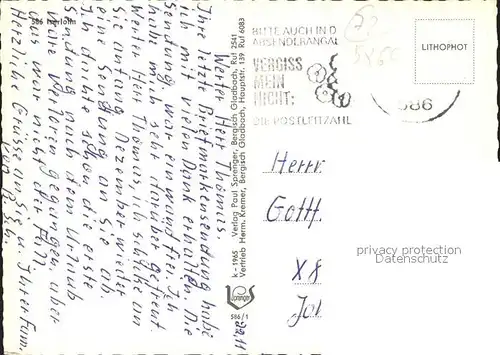 586 Iserlohn
Werter Herr Thomas.
Ihre letzte Briefmarkensendung habe
ich mit vielen Dank erhalten. Die
Sendung war einwandfrei. Ich
habe mich sehr darüber gefreut.
Werter Herr Thomas, ich schicke an
Sie anfang Dezember wieder
eine Sendung an Sie ab.
Ich dachte schon die erste
Sendung nach dem Urlaub
wäre verloren gegangen, aber
das war nicht der Fall.
Herzliche Grüsse an Sie u. Ihrer Fam.
von
K-1965 Verlag Paul Sprenger, Bergisch Gladbach, Ruf 2541
Vertrieb Herm. Kremer, Bergisch Gladbach, Hauptstr. 139 Ruf 6083
Sprenger
586/1
BITTE AUCH IN D
ABSENDERANGAB
VERGISS
MEIN
NICHT:
DIE POSTLEITZAHL
586
LITHOPHOT
Herrn
Gotth.
privacy protection
X8